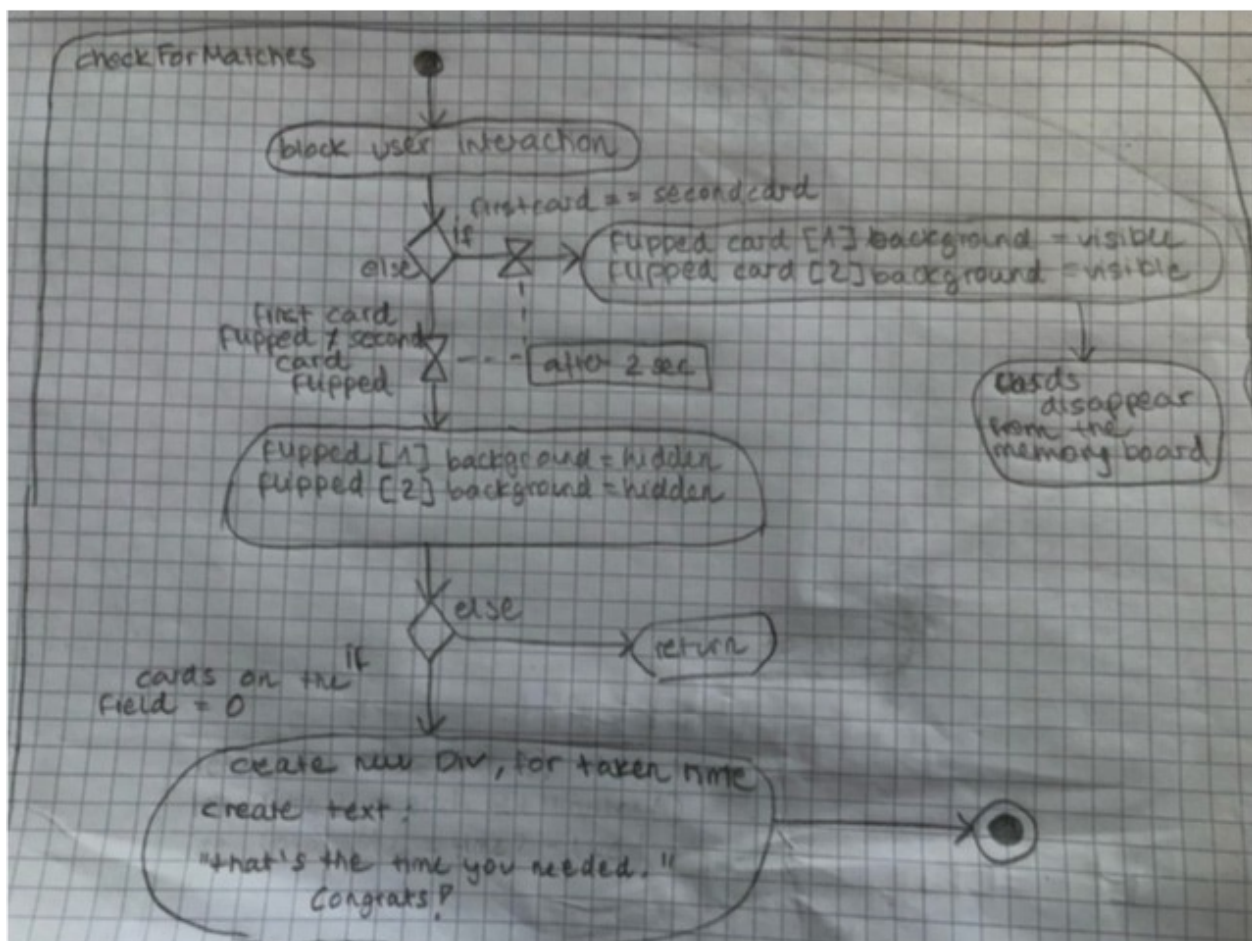 checkForMatches
block user interaction
firstcard == secondcard
if
else
flipped card [1] background = visible
flipped card [2] background = visible
first card
flipped ≠ second
card
flipped
after 2 sec
cards
disappear
from the
memory board
flipped [1] background = hidden
flipped [2] background = hidden
else
return
if
cards on the
field = 0
create new Div, for taken time
create text:
"that's the time you needed."
Congrats!